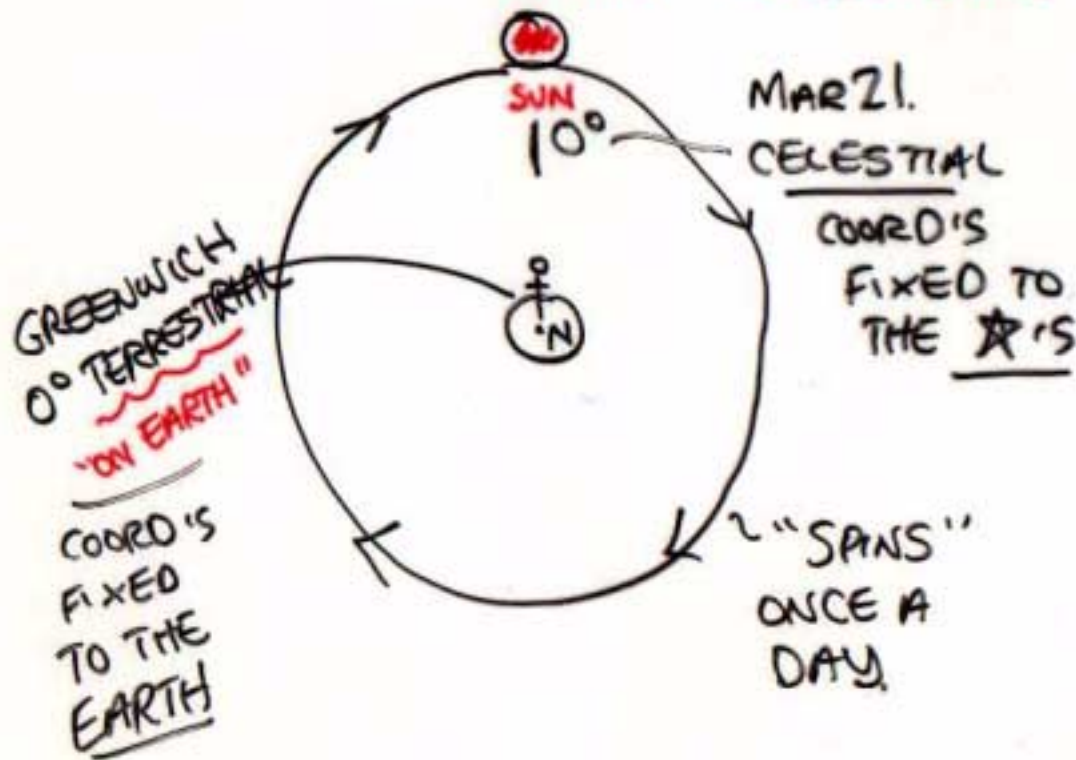 SUN
|0°
MAR 21.
CELESTIAL
COORD'S
FIXED TO
THE ☆'S
GREENWICH
0° TERRESTRIAL
"ON EARTH"
COORD'S
FIXED
TO THE
EARTH
N
~ "SPINS"
ONCE A
DAY.